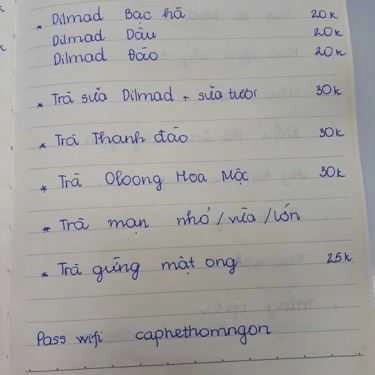 * Dilmad Bạc hà 20k
Dilmad Dâu 20k
Dilmad Đào 20k
* Trà sữa Dilmad + sữa tươi 30k
* Trà Thanh đào 30k
* Trà Oloong Hoa Mộc 30k
* Trà mạn nhỏ/vừa/lớn
* Trà gừng mật ong 25k
Pass wifi caphethomngon